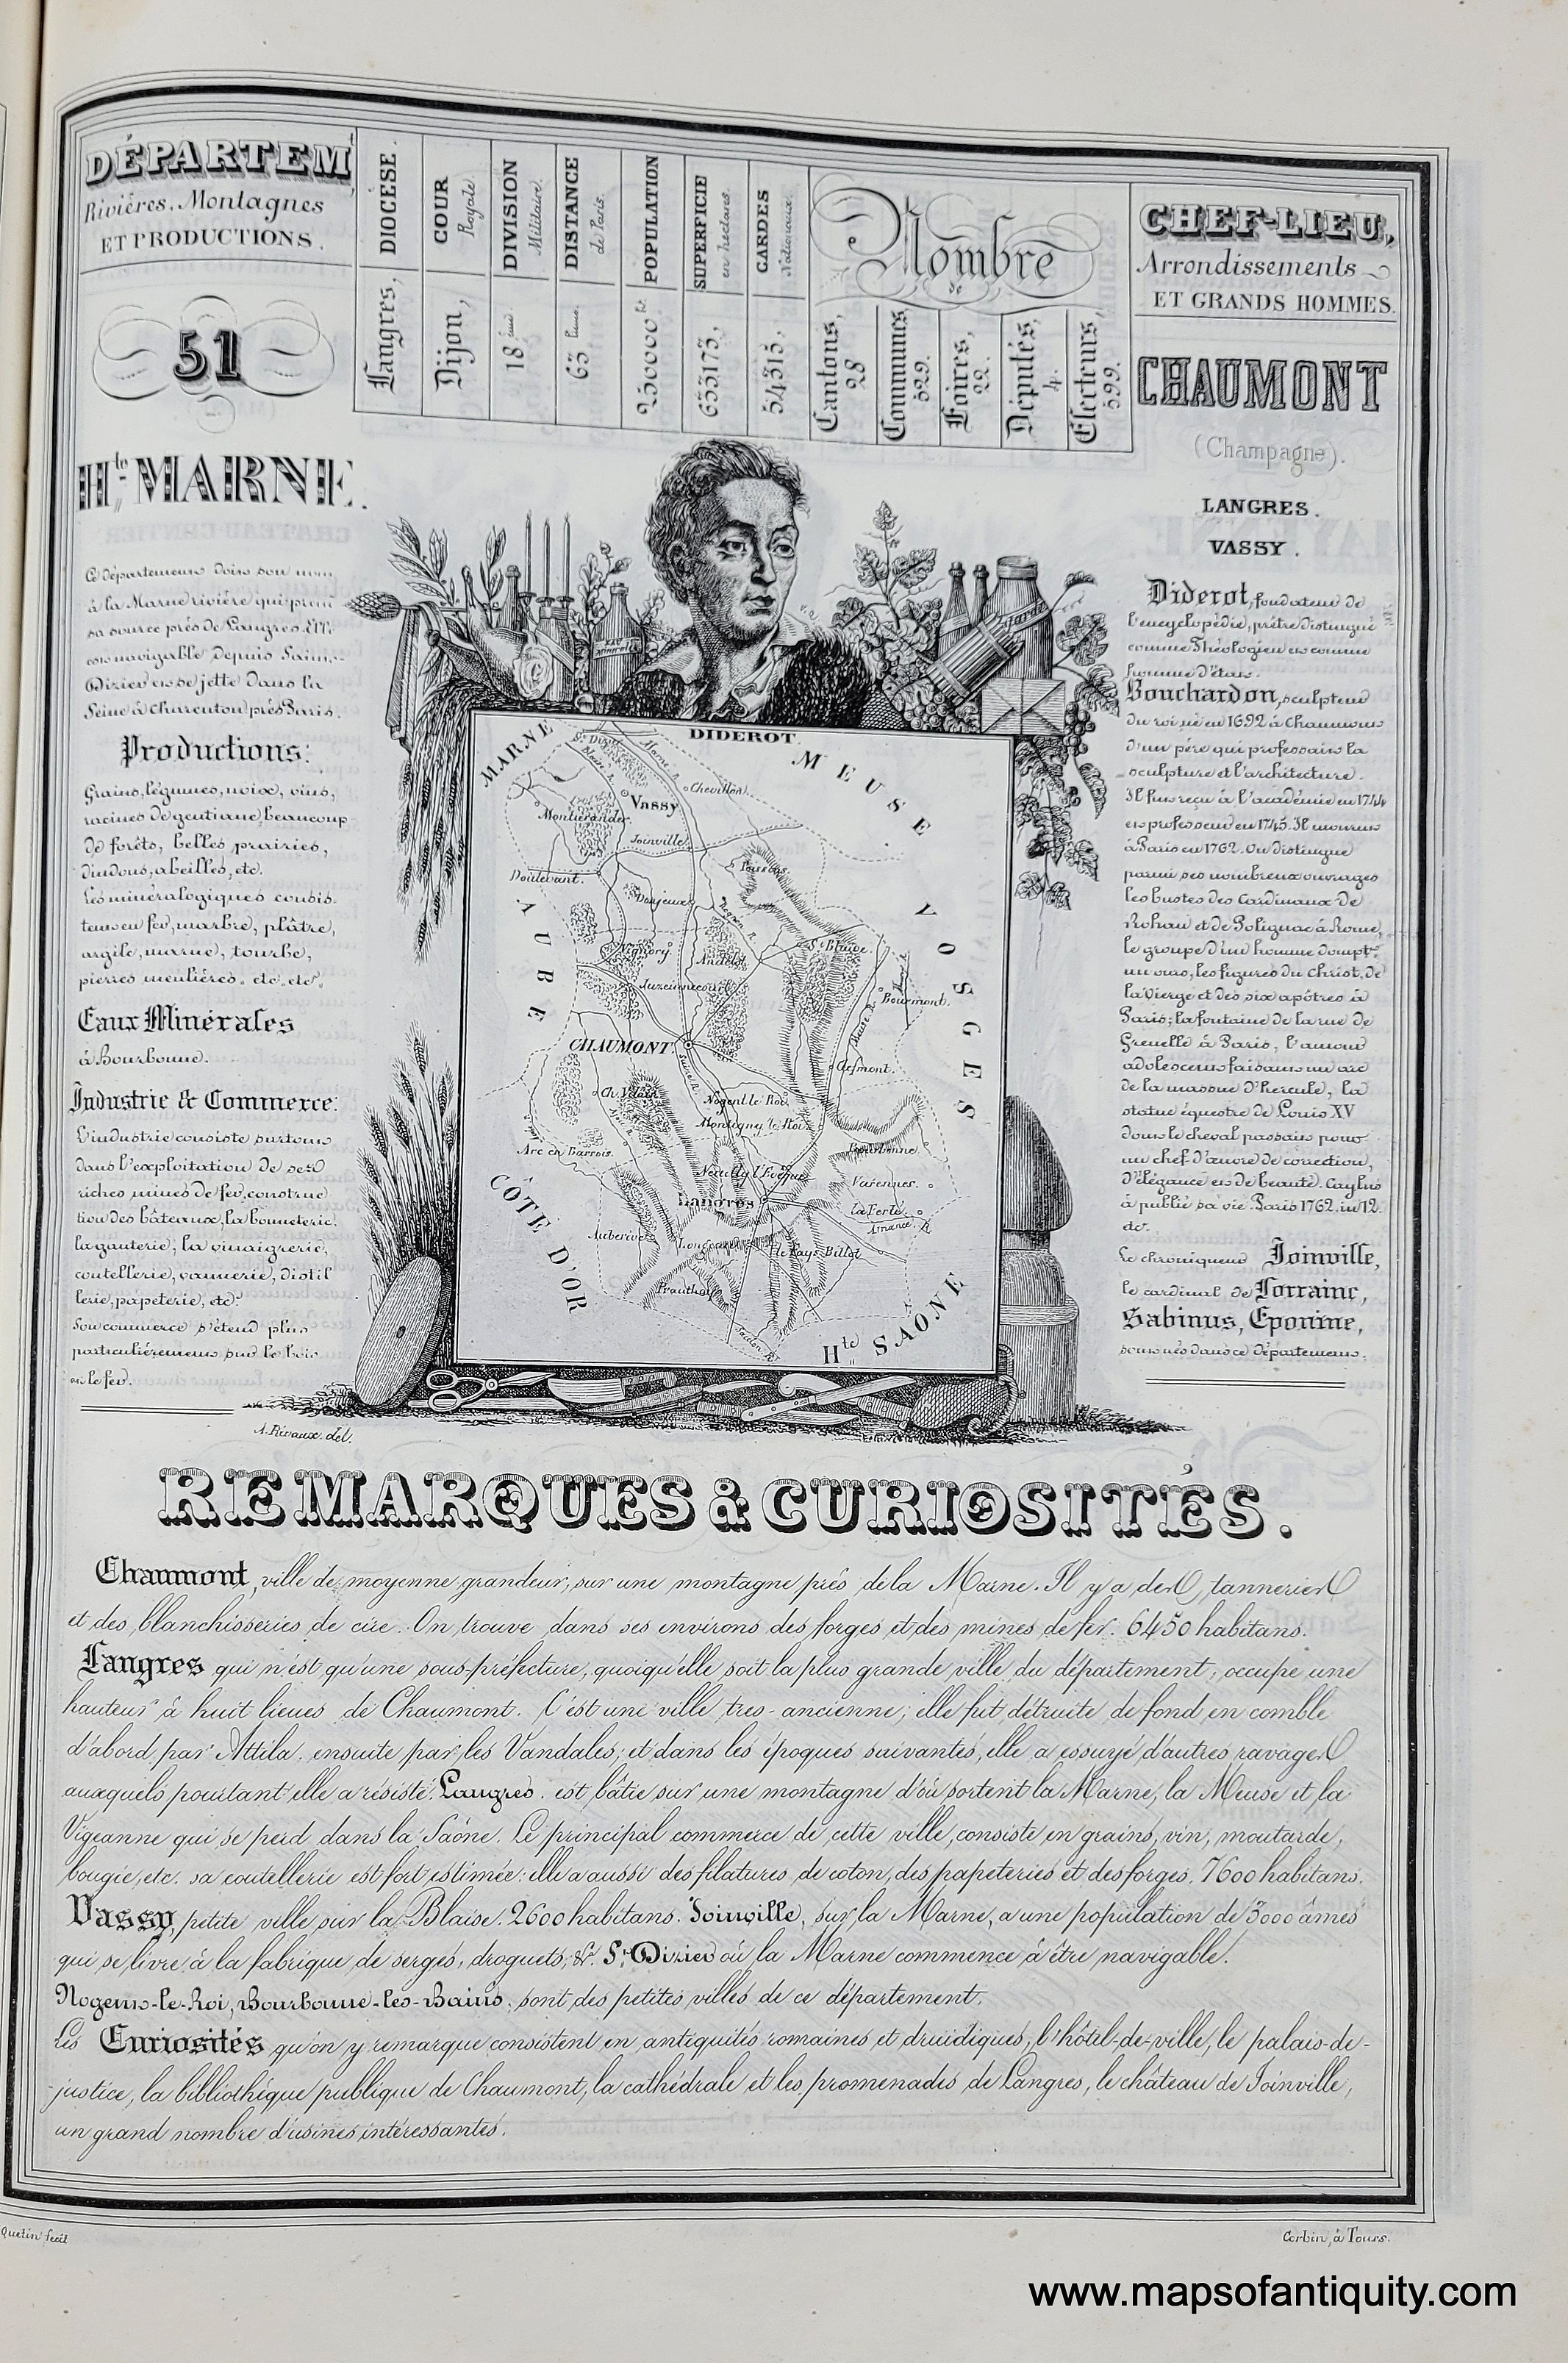 DÉPARTEM
Rivières, Montagnes
ET PRODUCTIONS.
51
Hte MARNE.
DIOCÈSE.
Langres,
COUR
Royale.
Dijon,
DIVISION
Militaire.
18eme
DISTANCE
de Paris.
63 lieues.
POPULATION
250000 h.
SUPERFICIE
en hectares.
633173,
GARDES
Nationaux.
54315,
Nombre
de
Cantons,
28
Communes,
529.
Foires,
92.
Députés,
4.
Electeurs,
599.
CHEF-LIEU,
Arrondissements
ET GRANDS HOMMES.
CHAUMONT
(Champagne).
LANGRES.
VASSY.
Ce département doit son nom
à la Marne rivière qui prend
sa source près de Langres. Elle
est navigable depuis Saint-
Dizier et se jette dans la
Seine à Charenton près Paris.
Productions:
Grains, légumes, noix, vins,
racines de gentiane, beaucoup
de forêts, belles prairies,
dindons, abeilles, etc.
Les minéralogiques consis-
tent en fer, marbre, plâtre,
argile, marne, tourbe,
pierres meulières, etc. etc.
Eaux Minérales
à Bourbonne.
Industrie & Commerce:
L'industrie consiste surtout
dans l'exploitation de ses
riches mines de fer, construc
tion des bateaux, la bonneterie,
la ganterie, la vinaigrerie,
coutellerie, vannerie, distil
lerie, papeterie, etc.
Son commerce s'étend plus
particulièrement sur le bois
et le fer.
A. Rivaux. del.
Diderot, fondateur de
l'encyclopédie, prêtre distingué
comme Théologien et comme
homme d'état.
Bouchardon, sculpteur
du roi né en 1692 à Chaumont
d'un père qui professait la
sculpture et l'architecture.
Il fut reçu à l'académie en 1744
et professeur en 1745. Il mourut
à Paris en 1762. On distingue
parmi ses nombreux ouvrages
les bustes des Cardinaux de
Rohan et de Polignac à Rome,
le groupe d'un homme dompt.t
un ours, les figures du Christ, de
la Vierge et des six apôtres à
Paris; la fontaine de la rue de
Grenelle à Paris, l'amour
adolescent faisant un arc
de la massue d'hercule, la
statue équestre de Louis XV
dont le cheval passait pour
un chef d'œuvre de correction,
d'élégance et de beauté. Caylus
à publié sa vie. Paris 1762. in 12.
etc.
Le chroniqueur Joinville,
le cardinal de Lorraine,
Sabinus, Eponine,
sont nés dans ce département.
EAU
Minérale
DIDEROT.
MARNE
MEUSE.
VOSGES
AUBE
CÔTE D'OR
Hte SAÔNE
St Dizier
Marne R.
Blaise R.
Chevillon
Vassy
Montierander
Joinville
Doulevant.
Poissons
Donjeux
Rognon R.
St Blaise
Vignory
Andelot
Juzennecourt
Bourmont.
Meuse R.
CHAUMONT
Clefmont.
Ch. Vilain
Nogent le Roi
Montigny le Roi
Arc en Barrois.
Bourbonne
Neuilly l'Evêque
Varennes.
Langres
la Ferté
Amance. R.
Auberive
Longeau
le Fays Billot
Prauthoy
REMARQUES & CURIOSITÉS.
Chaumont, ville de moyenne grandeur, sur une montagne près de la Marne. Il y a des tanneries
et des blanchisseries de cire. On trouve dans ses environs des forges et des mines de fer. 6450 habitans.
Langres qui n'est qu'une sous-préfecture, quoiqu'elle soit la plus grande ville du département, occupe une
hauteur à huit lieues de Chaumont. C'est une ville très-ancienne; elle fut détruite de fond en comble
d'abord par Attila. ensuite par les Vandales, et dans les époques suivantes, elle a essuyé d'autres ravages
auxquels pourtant elle a résisté. Langres. est bâtie sur une montagne d'où sortent la Marne, la Meuse et la
Vigeanne qui se perd dans la Saône. Le principal commerce de cette ville, consiste en grains, vin, moutarde,
bougie, etc. sa coutellerie est fort estimée: elle a aussi des filatures de coton, des papeteries et des forges. 7600 habitans.
Vassy, petite ville sur la Blaise. 2600 habitans. Joinville, sur la Marne, a une population de 3000 âmes
qui se livre à la fabrique de serges, droguets, &c. St Dizier où la Marne commence à être navigable.
Nogent-le-Roi, Bourbonne-les-Bains, sont des petites villes de ce département.
Les Curiosités qu'on y remarque consistent en antiquités romaines et druidiques, l'hôtel-de-ville, le palais-de-
justice, la bibliothèque publique de Chaumont, la cathédrale et les promenades de Langres, le château de Joinville,
un grand nombre d'usines intéressantes.
Quetin fecit
Corbin, à Tours.
www.mapsofantiquity.com